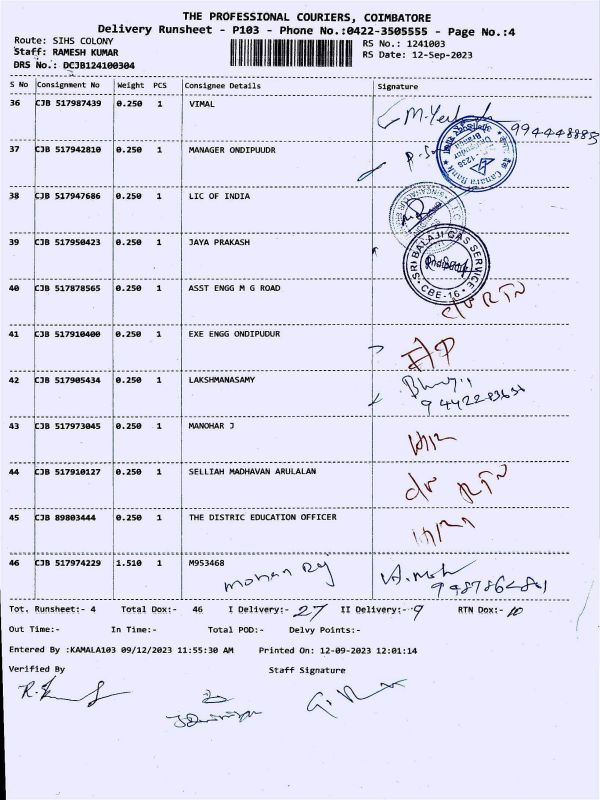 THE PROFESSIONAL COURIERS, COIMBATORE
Delivery Runsheet - P103 - Phone No.:0422-3505555 - Page No.:4
Route: SIHS COLONY
RS No.: 1241003
Staff: RAMESH KUMAR
RS Date: 12-Sep-2023
DRS No.: DCJB124100304
S No Consignment No Weight PCS Consignee Details Signature
36 CJB 517987439 0.250 1 VIMAL
37 CJB 517942810 0.250 1 MANAGER ONDIPUUDR
38 CJB 517947686 0.250 1 LIC OF INDIA
39 CJB 517950423 0.250 1 JAYA PRAKASH
SRI BALAJI GAS SERVICE
CBE-16
40 CJB 517878565 0.250 1 ASST ENGG M G ROAD
RTN
41 CJB 517910400 0.250 1 EXE ENGG ONDIPUDUR
42 CJB 517905434 0.250 1 LAKSHMANASAMY
43 CJB 517973045 0.250 1 MANOHAR J
44 CJB 517910127 0.250 1 SELLIAH MADHAVAN ARULALAN
RTN
45 CJB 89803444 0.250 1 THE DISTRIC EDUCATION OFFICER
46 CJB 517974229 1.510 1 M953468
Tot. Runsheet:- 4 Total Dox:- 46 I Delivery:- 27 II Delivery:- 9 RTN Dox:- 10
Out Time:- In Time:- Total POD:- Delvy Points:-
Entered By :KAMALA103 09/12/2023 11:55:30 AM Printed On: 12-09-2023 12:01:14
Verified By Staff Signature